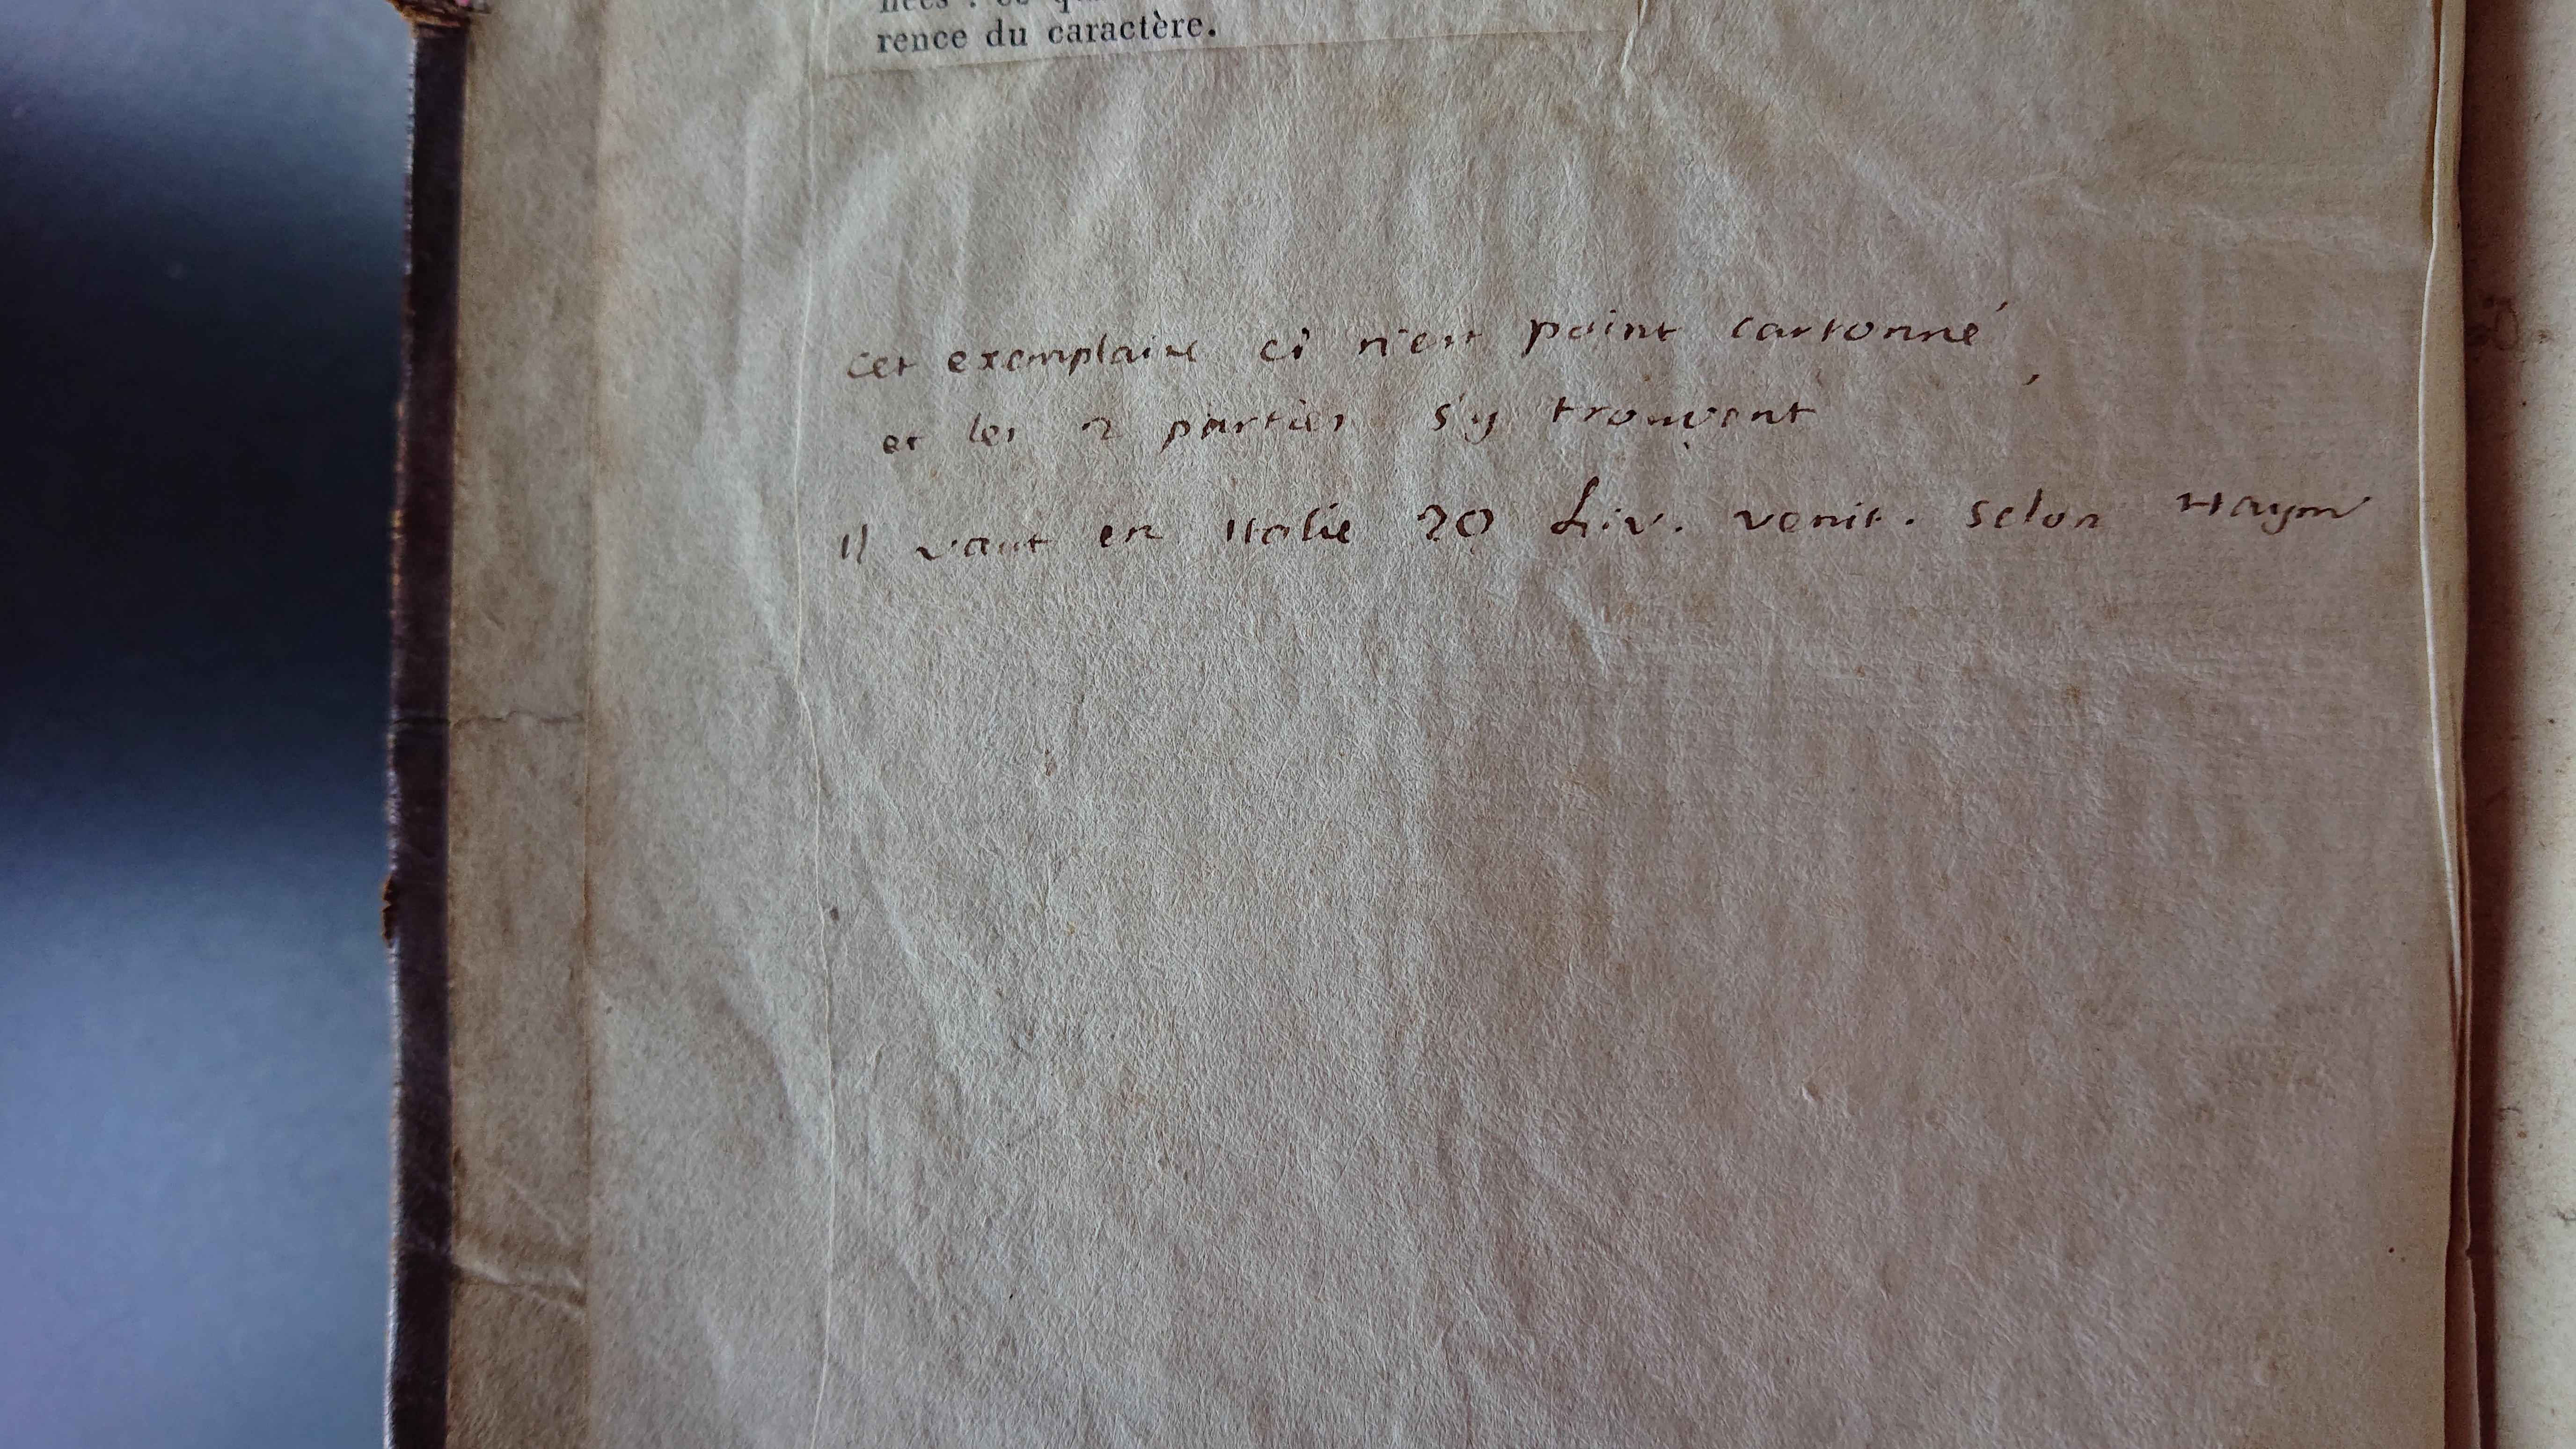 rence du caractère.
cet exemplaire ci n'est point cartonné,
et les 2 parties s'y trouvent
Il vaut en Italie 20 Liv. venit. selon Haym